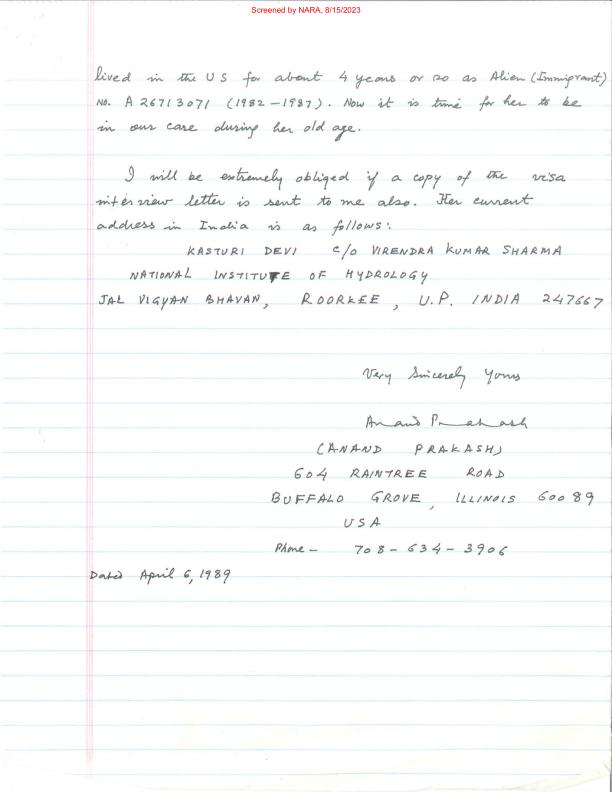 Screened by NARA, 8/15/2023
lived in the US for about 4 years or so as Alien (Immigrant)
No. A 26713071 (1982-1987). Now it is time for her to be
in our care during her old age.
I will be extremely obliged if a copy of the visa
interview letter is sent to me also. Her current
address in India is as follows:
KASTURI DEVI C/O VIRENDRA KUMAR SHARMA
NATIONAL INSTITUTE OF HYDROLOGY
JAL VIGYAN BHAVAN, ROORKEE, U.P. INDIA 247667
Very Sincerely Yours
Anand Prakash
(ANAND PRAKASH)
604 RAINTREE ROAD
BUFFALO GROVE, ILLINOIS 60089
USA
Phone - 708-634-3906
Dated April 6, 1989